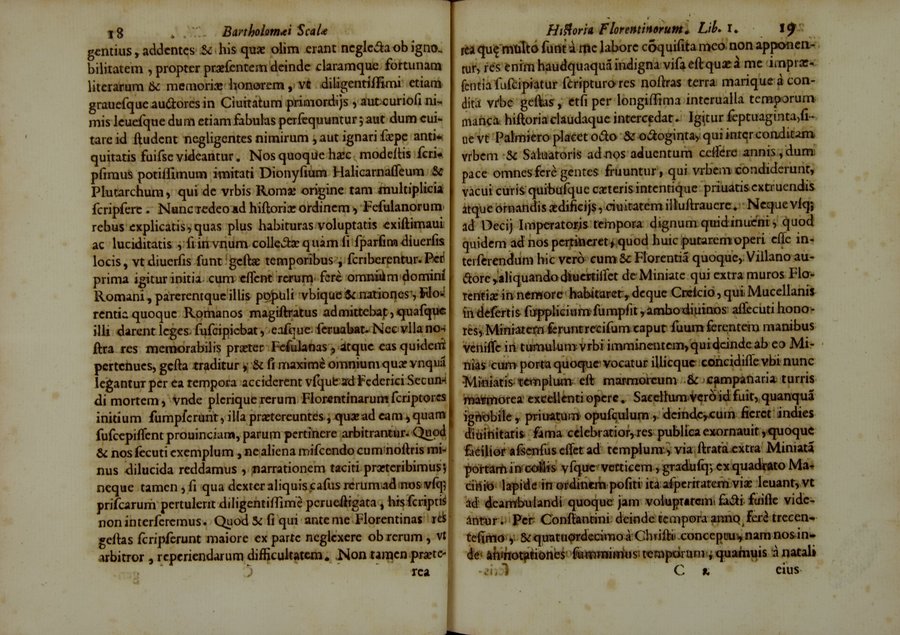 18 Bartholomæi Scalæ
gentius, addentes & his quæ olim erant neglecta ob igno-
bilitatem, propter præsentem deinde claramque fortunam
literarum & memoriæ honorem, vt diligentissimi etiam
grauesque auctores in Ciuitatum primordijs, aut curiosi ni-
mis leuesque dum etiam fabulas persequuntur; aut dum eui-
tare id student negligentes nimirum, aut ignari sæpe anti-
quitatis fuisse videantur. Nos quoque hæc modestis scri-
psimus potissimum imitati Dionysium Halicarnasseum &
Plutarchum, qui de vrbis Romæ origine tam multiplicia
scripsere. Nunc redeo ad historiæ ordinem, Fesulanorum
rebus explicatis, quas plus habituras voluptatis existimaui
ac luciditatis, si in vnum collectæ quàm si sparsim diuersis
locis, vt diuersis sunt gestæ temporibus, scriberentur. Per
prima igitur initia cum essent rerum ferè omnium domini
Romani, parerentque illis populi vbique & nationes, Flo-
rentia quoque Romanos magistratus admittebat, quasque
illi darent leges suscipiebat, easque seruabat. Nec vlla no-
stra res memorabilis præter Fesulanas, atque eas quidem
pertenues, gesta traditur, & si maximè omnium quæ vnquã
legantur per ea tempora acciderent vsque ad Federici Secun-
di mortem, vnde plerique rerum Florentinarum scriptores
initium sumpserunt, illa prætereuntes, quæ ad eam, quam
suscepissent prouinciam, parum pertinere arbitrantur. Quod
& nos secuti exemplum, ne aliena miscendo cum nostris mi-
nus dilucida reddamus, narrationem taciti præteribimus;
neque tamen, si qua dexter aliquis casus rerum ad nos vsq;
priscarum pertulerit diligentissimè peruestigata, his scriptis
non interseremus. Quod & si qui ante me Florentinas res
gestas scripserunt maiore ex parte neglexere ob rerum, vt
arbitror, reperiendarum difficultatem. Non tamen præte-
rea
Historia Florentinorum. Lib. 1. 19
rea que multo sunt à me labore cõquisita meo non apponen-
tur, res enim haudquaquã indigna visa est quæ à me impræ-
sentia suscipiatur scripturo res nostras terra marique à con-
dita vrbe gestas, etsi per longissima interualla temporum
manca historia claudaque intercedat. Igitur septuaginta, si-
ne vt Palmiero placet octo & octoginta, qui inter conditam
vrbem & Saluatoris ad nos aduentum cessere annis, dum
pace omnes ferè gentes fruuntur, qui vrbem condiderunt,
vacui curis quibusque cæteris intentique priuatis extruendis
atque ornandis ædificijs, ciuitatem illustrauere. Neque vsq;
ad Decij Imperatoris tempora dignum quid inueni, quod
quidem ad nos pertineret, quod huic putarem operi esse in-
terserendum hic verò cum & Florentiã quoque, Villano au-
ctore, aliquando diuertisset de Miniate qui extra muros Flo-
rentiæ in nemore habitaret, deque Crescio, qui Mucellanis
in desertis supplicium sumpsit, ambo diuinos assecuti hono-
res, Miniatem ferunt recisum caput suum ferentem manibus
venisse in tumulum vrbi imminentem, qui deinde ab eo Mi-
nias cum porta quoque vocatur illicque concidisse vbi nunc
Miniatis templum est marmoreum & campanaria turris
marmorea excellenti opere. Sacellum verò id fuit, quanquã
ignobile, priuatum opusculum, deinde, cum fieret indies
diuinitatis fama celebratior, res publica exornauit, quoque
facilior assensus esset ad templum, via strata extra Miniatã
portam in collis vsque verticem, gradusq; ex quadrato Ma-
cinio lapide in ordinem positi ita asperitatem viæ leuant, vt
ad deambulandi quoque jam voluptatem facti fuisse vide-
antur. Per Constantini deinde tempora anno ferè trecen-
tesimo, & quatuordecimo à Christi conceptu, nam nos in-
de annotationes summimus temporum, quamuis à natali
C 2 eius